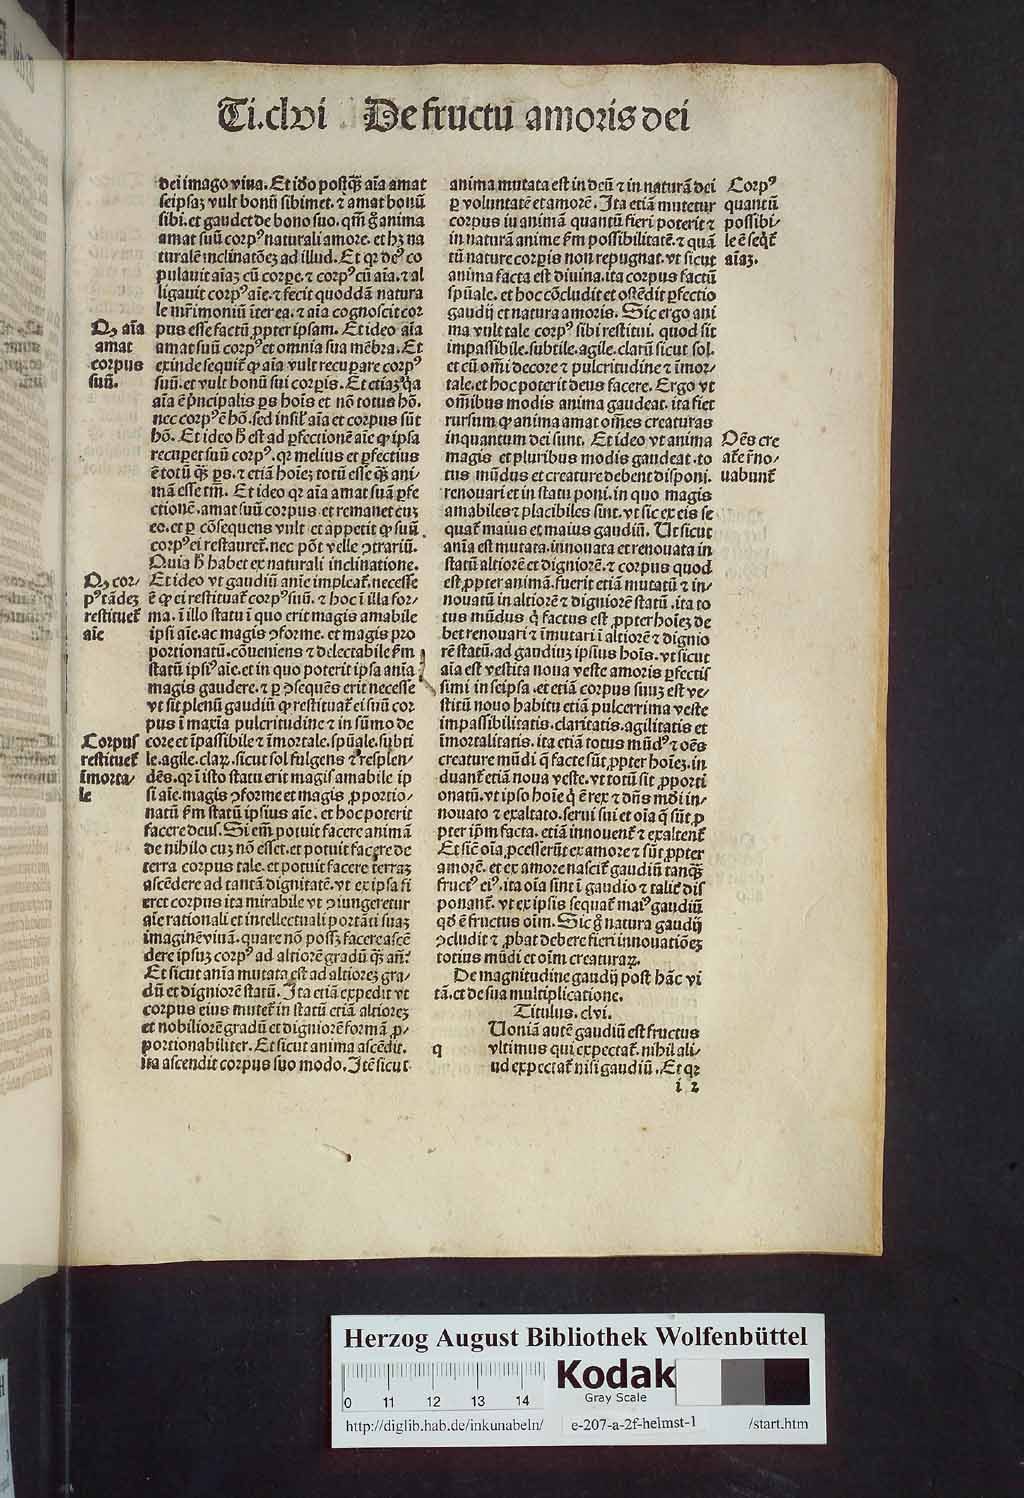 Ti.clvi De fructu amoris dei
dei imago viua. Et ido postq̄ʒ aīa amat
seipsaʒ vult bonū sibimet. ⁊ amat bonū
sibi. et gaudet de bono suo. qm̄ g̊ anima
amat suū corpꝰ naturali amore. et hʒ na
turalē inclinatōeʒ ad illud. Et qꝛ deꝰ co
pulauit aīaʒ cū corꝑe. ⁊ corpꝰ cū aīa. ⁊ al
ligauit corpꝰ aīe. ⁊ fecit quoddā natura
le mr̄imoniū iter ea. ⁊ aīa cognoscit cor
pus esse factū ꝓpter ipsam. Et ideo aīa
amat suū corpꝰ et omnia sua mēbra. Et
exinde sequit̄ ꝙ aīa vult recuperare corpꝰ
suū. et vult bonū sui corꝑis. Et etiaʒ q̄a
aīa ē prīncipalis ꝑs hoīs et nō totus hō.
nec corpꝰ ē hō. sed insil̄ aīa et corpus sūt
hō. Et ideo h̄ est ad ꝑfectionē aīe ꝙ ipsa
recuꝑet suū corpꝰ. qꝛ melius et ꝑfectius
ē totū q̄ʒ ꝑs. ⁊ etiā hoīeʒ totū esse q̄ʒ ani⸗
mā esse tm̄. Et ideo qꝛ aīa amat suā ꝑfe
ctionē. amat suū corpus et remanet cuʒ
eo. et ꝑ cōsequens vult et appetit ꝙ suū
corpꝰ ei restauret̄. nec pōt velle ꝯtrariū.
Quia h̄ habet ex naturali inclinatione.
Et ideo vt gaudiū anīe impleat̄. necesse
ē ꝙ ei restituat̄ corpꝰ suū. ⁊ hoc ī illa for⸗
ma. ī illo statu ī quo erit magis amabile
ipsi aīe. ac magis ꝯforme. et magis pro
portionatū. cōueniens ⁊ delectabile ẜm
statū ipsiꝰ aīe. et in quo poterit ipsa anīa
magis gaudere. ⁊ ꝑ ꝯsequēs erit necesse
vt sit plenū gaudiū ꝙ restituat̄ ei suū cor
pus ī maxīa pulcritudine ⁊ in sūmo de
core et īpassibile ⁊ īmortale. spūale. subti
le. agile. claꝝ. sicut sol fulgens ⁊ resplen⸗
dēs. qꝛ ī isto statu erit magis amabile ip
si aīe. magis ꝯforme et magis ꝓportio⸗
natū ẜm statū ipsius aīe. et hoc poterit
facere deus. Si em̄ potuit facere animā
de nihilo cuʒ non esset. et potuit facere de
terra corpus tale. et potuit facere terraʒ
ascēdere ad tantā dignitatē. vt ex ipsa fi
eret corpus ita mirabile vt ꝯiungeretur
aīe rationali et intellectuali portāti suaʒ
imaginē viuā. quare nō possʒ facere ascē
dere ipsuʒ corpꝰ ad altiorē gradū q̄ʒ añ?
Et sicut anīa mutata est ad altioreʒ gra⸗
dū et digniorē statū. Ita etiā expedit vt
corpus eius mutet̄ in statū etiā altioreʒ
et nobiliorē gradū et digniorē formā ꝓ⸗
portionabiliter. Et sicut anima ascēdit.
ita ascendit corpus suo modo. Itē sicut
Qʒ aīa
amat
corpus
suū.
Qʒ cor⸗
pꝰ tādeʒ
restituet̄
aīe
Corpus
restituet̄
īmorta⸗
le
anima mutata est in deū ⁊ in naturā dei
ꝑ voluntatē et amorē. Ita etiā mutetur
corpus in animā quantū fieri poterit ⁊
in naturā anime ẜm possibilitatē. ⁊ quā
tū nature corꝑis non repugnat. vt sicut
anima facta est diuina. ita corpus factū
spūale. et hoc cōcludit et ostēdit ꝑfectio
gaudij et natura amoris. Sic ergo ani
ma vult tale corpꝰ sibi restitui. quod sit
impassibile. subtile. agile. clarū sicut sol.
et cū om̄i decore ⁊ pulcritudine ⁊ īmor⸗
tale. et hoc poterit deus facere. Ergo vt
om̄ibus modis anima gaudeat. ita fiet
rursum ꝙ anima amat om̄es creaturas
inquantum dei sunt. Et ideo vt anima
magis et pluribus modis gaudeat. to
tus mūdus et creature debent disponi.
renouari et in statu poni. in quo magis
amabiles ⁊ placibiles sint. vt sic ex eis se
quat̄ maius et maius gaudiū. Ut sicut
anīa est mutata. innouata et renouata in
statū altiorē et digniorē. ⁊ corpus quod
est ꝓpter animā. fuerit etiā mutatū ⁊ in⸗
nouatū in altiorē ⁊ digniorē statū. ita to
tus mūdus q̇ factus est ꝓpter hoīeʒ de
bet renouari ⁊ īmutari ī altiorē ⁊ dignio
rē statū. ad gaudiuʒ ipsius hoīs. vt sicut
aīa est vestita noua veste amoris ꝑfectis
simi in seipsa. et etiā corpus suuʒ est ve⸗
stitū nouo habitu etiā pulcerrima veste
impassibilitatis. claritatis. agilitatis et
īmortalitatis. ita etiā totus mūdꝰ ⁊ oēs
creature mūdi q̄ facte sūt ꝓpter hoīeʒ. in
duant̄ etiā noua veste. vt totū sit ꝓporti
onatū. vt ipso hoīe q̇ ē rex ⁊ dn̄s mūdi in⸗
nouato ⁊ exaltato. serui sui et oīa q̄ sūt ꝓ
pter ip̄m facta. etiā innouent̄ ⁊ exaltent̄
Et sic̄ oīa ꝓcesserūt ex amore ⁊ sūt ꝓpter
amorē. et ex amore nascit̄ gaudiū tanq̄ʒ
fructꝰ eiꝰ. ita oīa sint ī gaudio ⁊ talit̄ dis
ponant̄. vt ex ipsis sequat̄ maiꝰ gaudiū
qd̄ ē fructus oīm. Sic g̊ natura gaudij
ꝯcludit ⁊ ꝓbat debere fieri innouatiōeʒ
totius mūdi et oīm creaturaꝝ.
De magnitudine gaudij post hāc vi
tā. et de sua multiplicatione.
Titulus. clvi.
q Uoniā autē gaudiū est fructus
vltimus qui expectat̄. nihil ali⸗
ud expectat̄ nisi gaudiū. Et qꝛ
i 2
Corpꝰ
quantū
possibi⸗
le ē seq̄t̄
aīaʒ.
Oēs cre
at̄e r̄no⸗
uabunt̄
Herzog August Bibliothek Wolfenbüttel
0 11 12 13 14
Kodak
Gray Scale
http://diglib.hab.de/inkunabeln/ e-207-a-2f-helmst-1 /start.htm